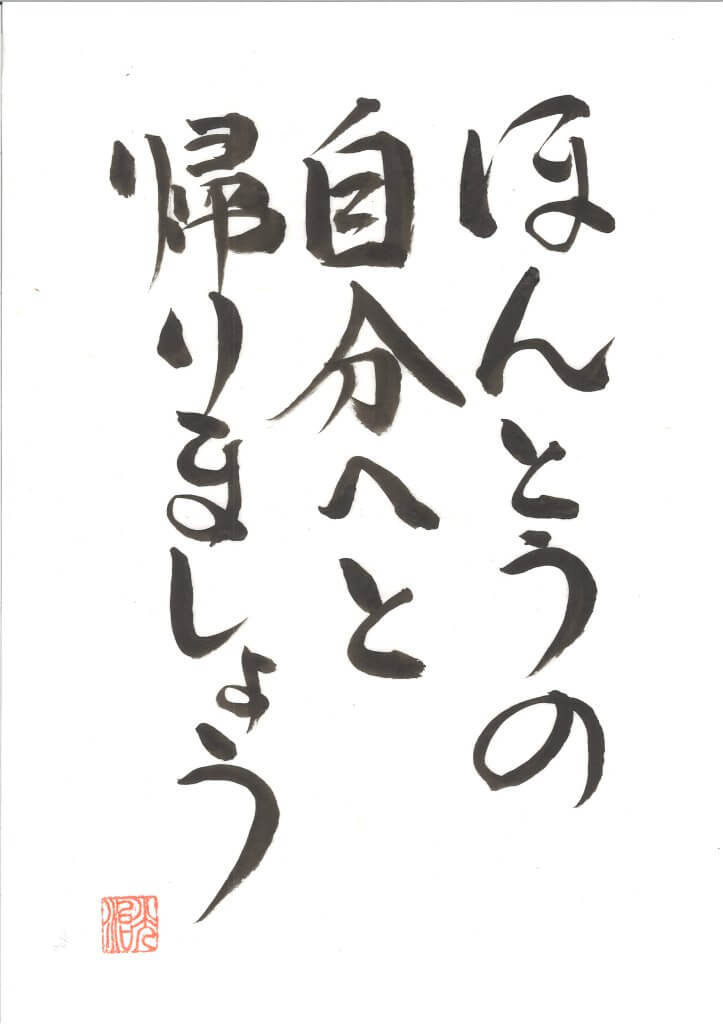 ほんとうの
自分へと
帰りましょう